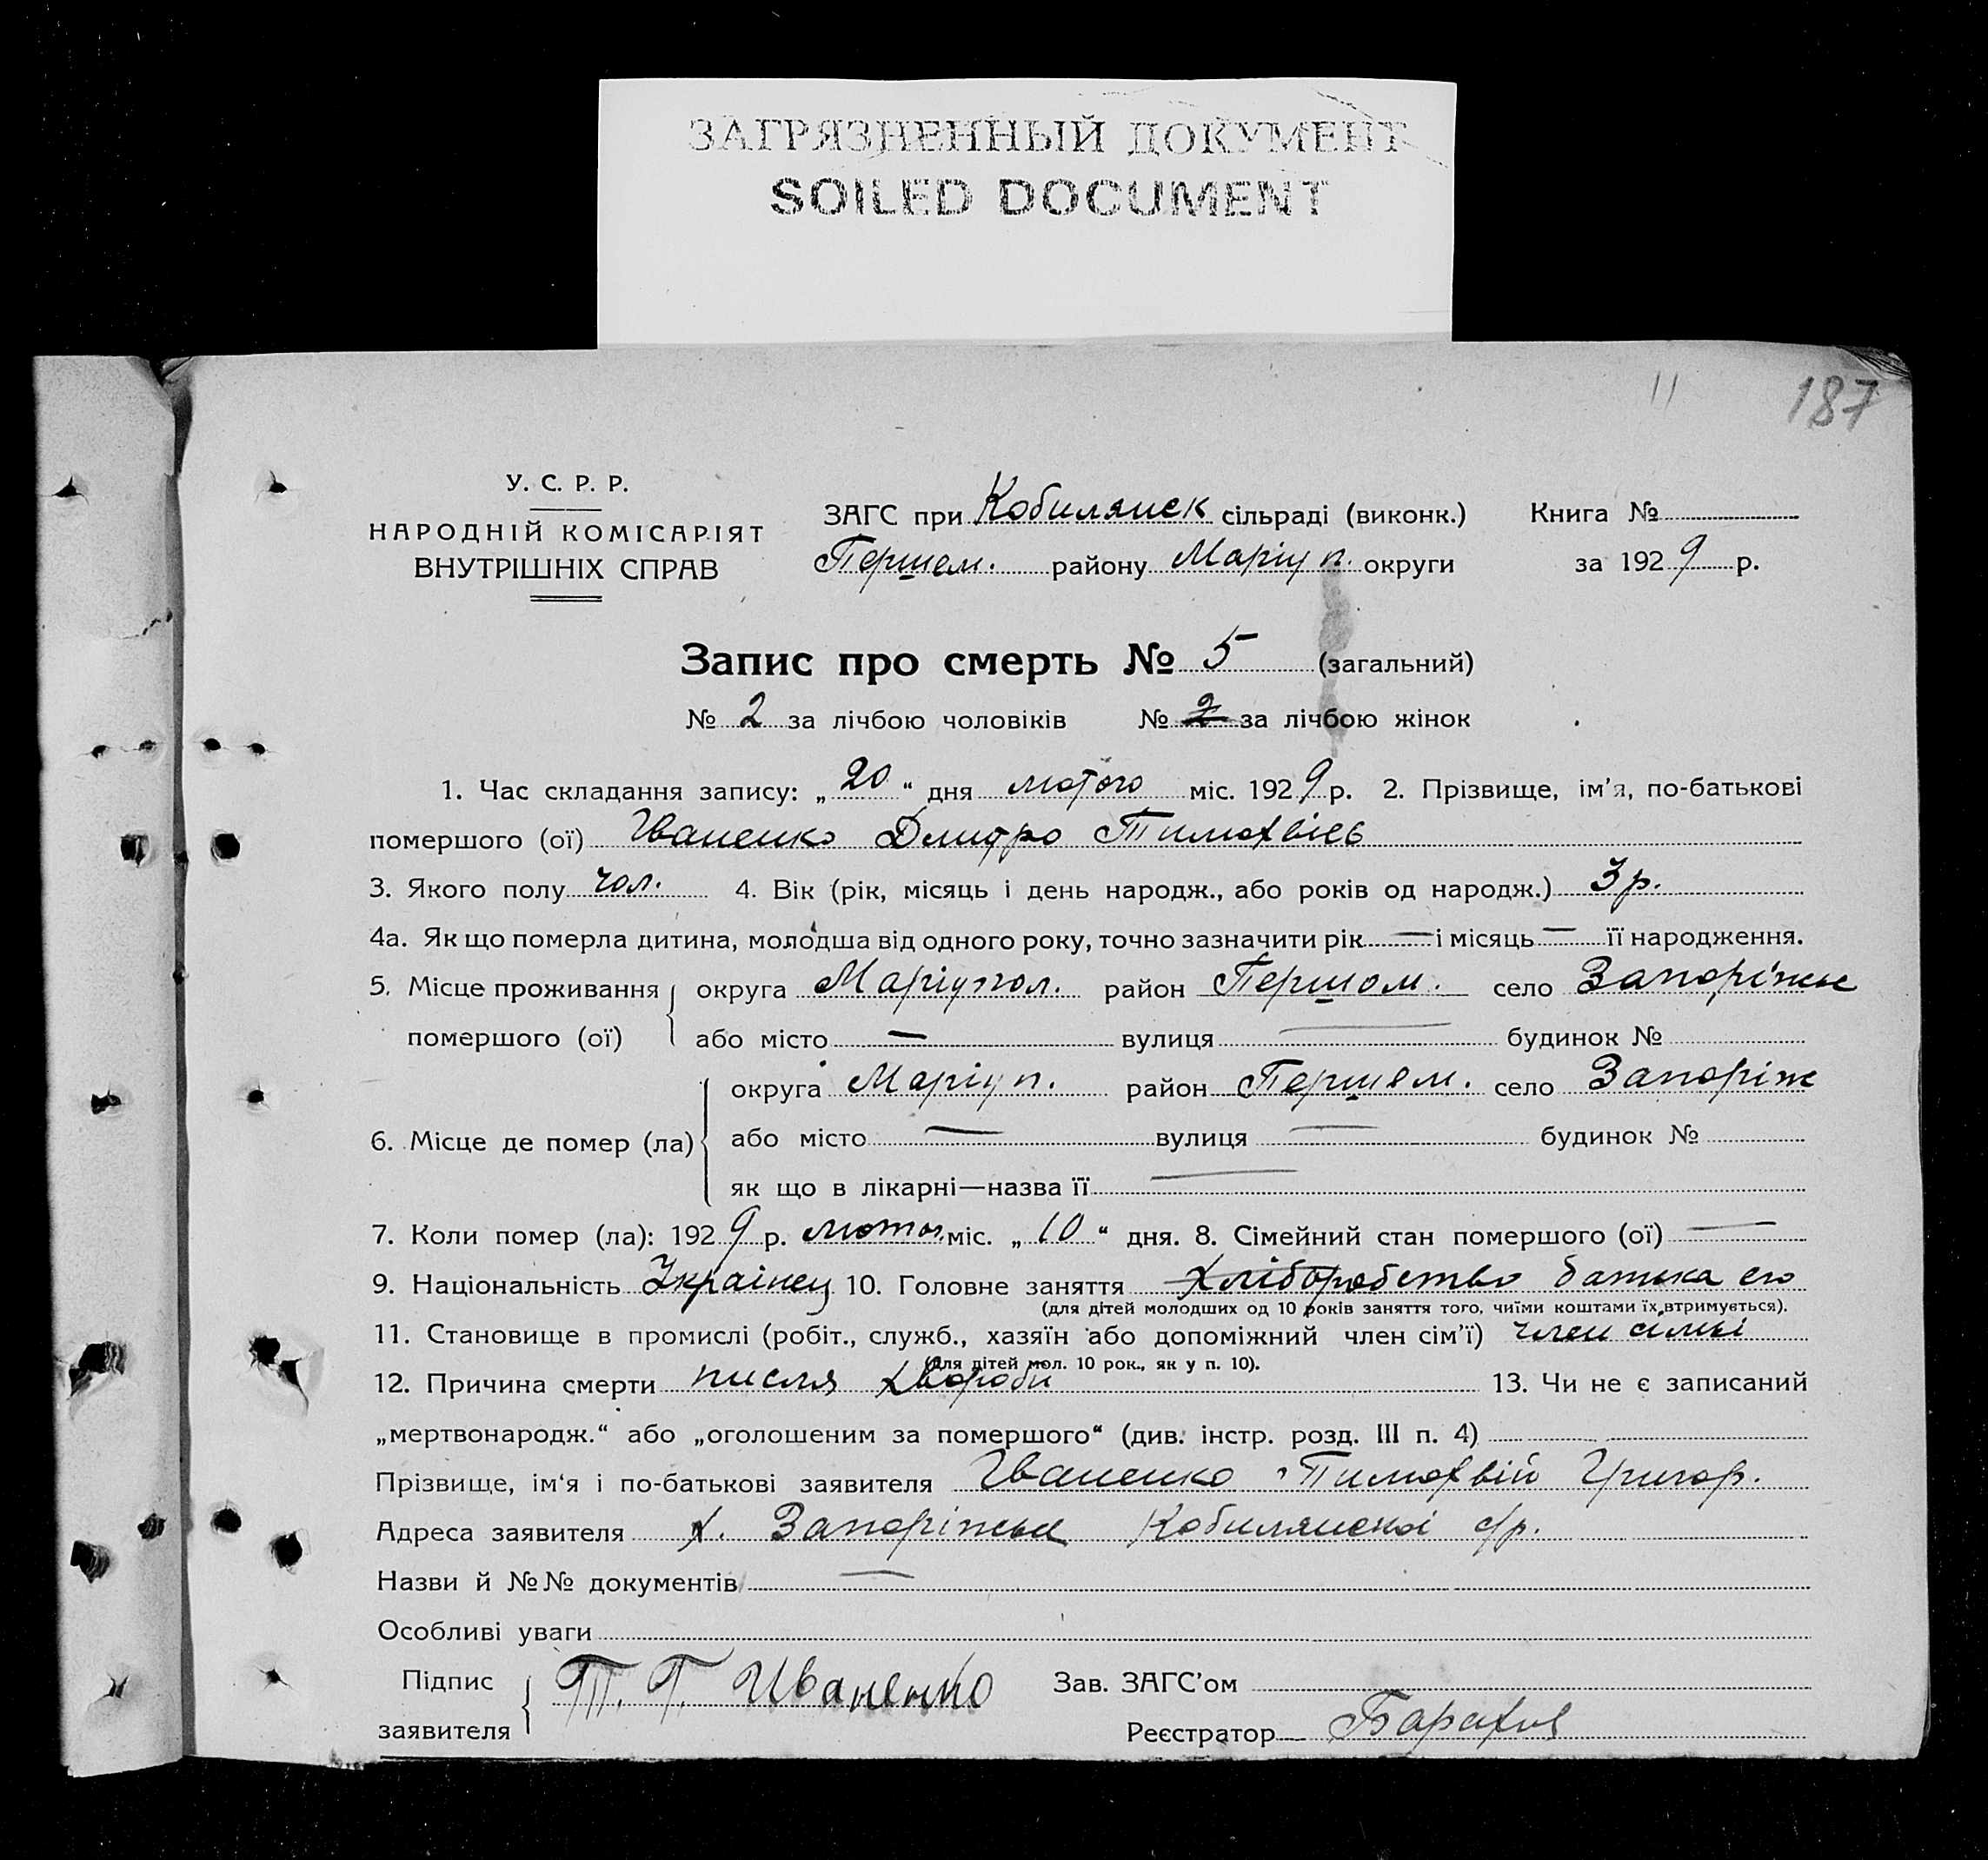 ЗАГРЯЗНЕННЫЙ ДОКУМЕНТ
SOILED DOCUMENT
11 187
У. С. Р. Р.
НАРОДНІЙ КОМІСАРІЯТ
ВНУТРІШНІХ СПРАВ
ЗАГС при Кобилянск сільраді (виконк.) Книга №
Першом. району Маріуп. округи за 1929 р.
Запис про смерть № 5 (загальний)
№ 2 за лічбою чоловіків № 2 за лічбою жінок
1. Час складання запису: „20“ дня лютого міс. 1929 р. 2. Прізвище, ім'я, по-батькові
помершого (ої) Іваненко Дмитро Тимохвієв
3. Якого полу чол. 4. Вік (рік, місяць і день народж., або років од народж.) 3 р.
4а. Як що померла дитина, молодша від одного року, точно зазначити рік — і місяць — її народження.
5. Місце проживання округа Маріупол. район Першом. село Запоріжье
помершого (ої) або місто — вулиця — будинок №
округа Маріуп. район Першом. село Запоріж
6. Місце де помер (ла) або місто — вулиця — будинок №
як що в лікарні—назва її —
7. Коли помер (ла): 1929 р. лютого міс. „10“ дня. 8. Сімейний стан помершого (ої) —
9. Національність Українец 10. Головне заняття хліборобство батька его
(для дітей молодших од 10 років заняття того, чиїми коштами їх втримується).
11. Становище в промислі (робіт., служб., хазяїн або допоміжний член сім'ї) член сімьі
(для дітей мол. 10 рок., як у п. 10).
12. Причина смерти писля хвороби 13. Чи не є записаний
„мертвонародж.“ або „оголошеним за помершого“ (див. інстр. розд. III п. 4)
Прізвище, ім'я і по-батькові заявителя Іваненко Тимохвій Григор.
Адреса заявителя х. Запоріжье Кобилянскоі с/р.
Назви й №№ документів —
Особливі уваги
Підпис заявителя Т. Г. Иваненко Зав. ЗАГС'ом
Реєстратор